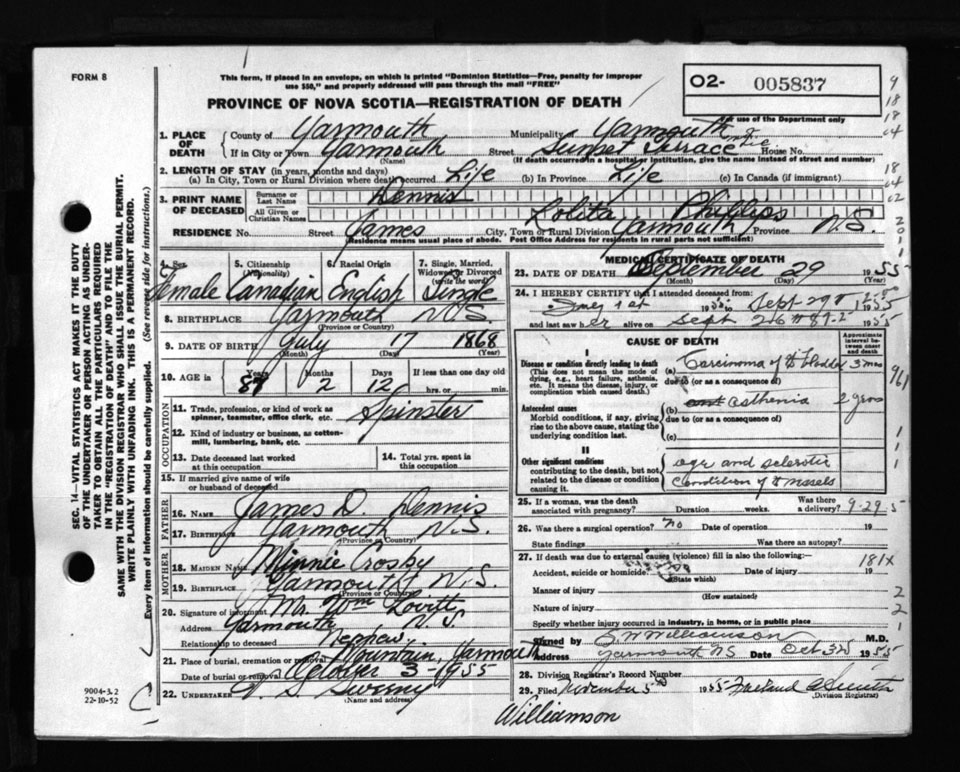 FORM 8
This form, if placed in an envelope, on which is printed "Dominion Statistics—Free, penalty for improper
use $50," and properly addressed will pass through the mail "FREE"
O2- 005837
PROVINCE OF NOVA SCOTIA—REGISTRATION OF DEATH
For use of the Department only
1. PLACE OF DEATH County of Yarmouth Municipality of Yarmouth
If in City or Town Yarmouth (Name) Street Sunset Terrace House No.
(If death occurred in a hospital or institution, give the name instead of street and number)
2. LENGTH OF STAY (in years, months and days)
(a) In City, Town or Rural Division where death occurred Life (b) In Province Life (c) In Canada (if immigrant)
3. PRINT NAME OF DECEASED Surname or Last Name Dennis
All Given or Christian Names Lolita Phillips
RESIDENCE No. Street James City, Town or Rural Division Yarmouth Province N.S.
Residence means usual place of abode. Post Office Address for residents in rural parts not sufficient)
4. Sex Female
5. Citizenship (Nationality) Canadian
6. Racial Origin English
7. Single, Married, Widowed or Divorced (write the word) Single
8. BIRTHPLACE Yarmouth N.S.
(Province or Country)
9. DATE OF BIRTH July 17 1868
(Month) (Day) (Year)
10. AGE in Years 87 Months 2 Days 12 If less than one day old hrs. or min.
OCCUPATION
11. Trade, profession, or kind of work as spinner, teamster, office clerk, etc. Spinster
12. Kind of industry or business, as cotton-mill, lumbering, bank, etc.
13. Date deceased last worked at this occupation
14. Total yrs. spent in this occupation
15. If married give name of wife or husband of deceased
FATHER
16. NAME James D. Dennis
17. BIRTHPLACE Yarmouth N.S.
(Province or Country)
MOTHER
18. MAIDEN NAME Minnie Crosby
19. BIRTHPLACE Yarmouth N.S.
(Province or Country)
20. Signature of informant Mr. Wm Lovitt
Address Yarmouth N.S.
Relationship to deceased Nephew
21. Place of burial, cremation or removal Mountain, Yarmouth
Date of burial or removal October 3 1955
22. UNDERTAKER S. Sweeny
(Name and address)
MEDICAL CERTIFICATE OF DEATH
23. DATE OF DEATH September 29 1955
(Month) (Day) (Year)
24. I HEREBY CERTIFY that I attended deceased from:
to Sept 29 1955
and last saw her alive on Sept 1955
CAUSE OF DEATH
Approximate interval between onset and death
I
Disease or condition directly leading to death
(This does not mean the mode of dying, e.g., heart failure, asthenia, etc. It means the disease, injury, or complication which caused death.)
(a) Carcinoma of 3 mos
due to (or as a consequence of)
Asthenia 2 years
Antecedent causes
Morbid conditions, if any, giving rise to the above cause, stating the underlying condition last.
(b)
due to (or as a consequence of)
(c)
II
Other significant conditions
contributing to the death, but not related to the disease or condition causing it.
age and sclerotic
condition of vessels
25. If a woman, was the death associated with pregnancy? Duration weeks. Was there a delivery? 9-29-5
26. Was there a surgical operation? no Date of operation 19
State findings Was there an autopsy?
27. If death was due to external causes (violence) fill in also the following:—
Accident, suicide or homicide Date of injury 19
(State which)
181X
Manner of injury
(How sustained)
Nature of injury
Specify whether injury occurred in industry, in home, or in public place
Signed by S. W. Williamson M.D.
Address Yarmouth NS Date Oct 3rd 1955
28. Division Registrar's Record Number
29. Filed November 5th 1955
(Division Registrar)
Williamson
SEC. 14—VITAL STATISTICS ACT MAKES IT THE DUTY
OF THE UNDERTAKER OR PERSON ACTING AS UNDER-
TAKER TO OBTAIN ALL THE PARTICULARS REQUIRED
IN THE "REGISTRATION OF DEATH" AND TO FILE THE
SAME WITH THE DIVISION REGISTRAR WHO SHALL ISSUE THE BURIAL PERMIT.
WRITE PLAINLY WITH UNFADING INK. THIS IS A PERMANENT RECORD.
Every item of information should be carefully supplied. (See reverse side for instructions.)
9004-3.2
22-10-52